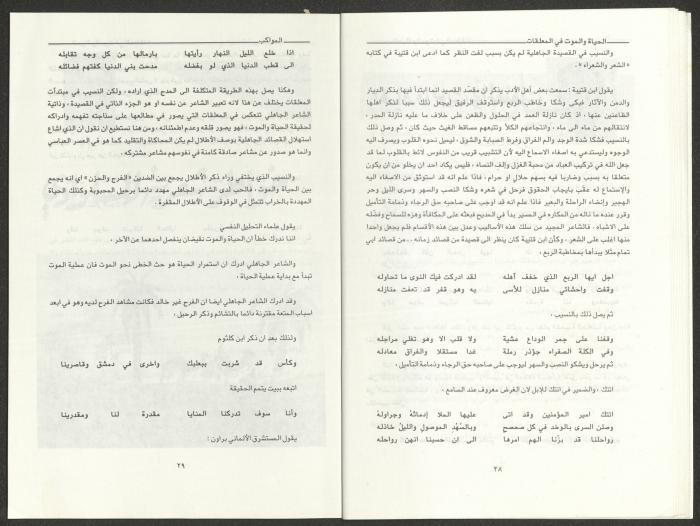 الحياة والموت في المعلقات
والنسيب في القصيدة الجاهلية لم يكن بسبب لفت النظر كما ادعى ابن قتيبة في كتابه
«الشعر والشعراء» .
يقول ابن قتيبة : سمعت بعض أهل الأدب يذكر ان مقصّد القصيد انما ابتدأ فيها بذكر الديار
والدمن والآثار فبكى وشكا وخاطب الربع واستوقف الرفيق ليجعل ذلك سببا لذكر أهلها
الظاعنين عنها ، اذ كان نازلة العمد في الحلول والظعن على خلاف ما عليه نازلة المدر ،
لانتقالهم من ماء الى ماء ، وانتجاعهم الكلأ وتتبعهم مساقط الغيث حيث كان ، ثم وصل ذلك
بالنسيب فشكا شدة الوجد وألم الفراق وفرط الصبابة والشوق ، ليميل نحوه القلوب ويصرف اليه
الوجوه وليستدعي به اصغاء الاسماع اليه لأن التشبيب قريب من النفوس لائط بالقلوب لما قد
جعل الله في تركيب العباد من محبة الغزل وإلف النساء ، فليس يكاد احد ان يخلو من ان يكون
متعلقا به بسبب وضاربا فيه بسهم حلال او حرام ، فاذا علم انه قد استوثق من الاصغاء اليه
والاستماع له عقّب بايجاب الحقوق فرحل في شعره وشكا النصب والسهر وسرى الليل وحر
الهجير وإنضاء الراحلة والبعير فاذا علم انه قد اوجب على صاحبه حق الرجاء وذمامة التأميل
وقرر عنده ما ناله من المكاره في المسير بدأ في المديح فبعثه على المكافأة وهزه للسماح وفضّله
على الاشباه ، فالشاعر المجيد من سلك هذه الأساليب وعدل بين هذه الأقسام فلم يجعل واحدا
منها اغلب على الشعر ، وكأن ابن قتيبة كان ينظر الى قصيدة من قصائد زمانه .. من قصائد ابي
تمام مثلا يبدأها بمخاطبة الربع ،
اجل ايها الربع الذي خفف آهله لقد ادركت فيك النوى ما تحاوله
وقفت واحشائي منازل للأسى به وهو قفر قد تعفت منازله
ثم يصل ذلك بالنسيب .
وقفنا على جمر الوداع عشية ولا قلب الا وهو تغلي مراجله
وفي الكلة الصفراء جؤذر رملة غدا مستقلا والفراق معادله
ثم يرحل ويشكو النصب والسهر ليوجب على صاحبه حق الرجاء وذمامة التأميل .
اتتك ، والضمير في اتتك للإبل لان الغرض معروف عند السامع .
اتتك امير المؤمنين وقد اتى عليها الملا إدمائهُ وجراولهُ
وصلن السرى بالوخد في كل صحصح وبالسُّهْدِ الموصول والليلُ خاذله
رواحلنا قد بزّنا الهم امرها الى ان حسبنا انهن رواحله
٢٨
المواكب
اذا خلع الليل النهار رأيتها بإرمالها من كل وجه تقابله
الى قطب الدنيا الذي لو بفضله مدحت بني الدنيا كفتهم فضائله
وهكذا يصل بهذه الطريقة المتكلفة الى المدح الذي اراده ، ولكن النسيب في مبتدآت
المعلقات يختلف عن هذا لانه تعبير الشاعر عن نفسه او هو الجزء الذاتي في القصيدة ، وذاتية
الشاعر الجاهلي تنعكس في المعلقات التي يصور في مطالعها على سذاجته تفهمه وادراكه
لحقيقة الحياة والموت ، فهو يصور قلقه وعدم اطمئنانه . ومن هنا نستطيع ان نقول ان الذي اشاع
استهلال القصائد الجاهلية بوصف الأطلال لم يكن المحاكاة والتقليد كما هو في العصر العباسي
وانما هو صدور عن مشاعر صادقة كامنة في نفوسهم مشاعر مشتركه .
والنسيب الذي يختفي وراء ذكر الأطلال يجمع بين الضدين «الفرح والحزن» اي انه يجمع
بين الحياة والموت ، فالحب لدى الشاعر الجاهلي مهدد دائما برحيل المحبوبة وكذلك الحياة
المهددة بالخراب تتمثل في الوقوف على الأطلال المقفرة .
يقول علماء التحليل النفسي
اننا ندرك خطأ ان الحياة والموت نقيضان ينفصل احدهما عن الآخر .
والشاعر الجاهلي ادرك ان استمرار الحياة هو حث الخطى نحو الموت فان عملية الموت
تبدأ مع بداية عملية الحياة .
وقد ادرك الشاعر الجاهلي ايضا ان الفرح غير خالد فكانت مشاهد الفرح لديه وهو في ابعد
اسباب المتعة مقترنة دائما بالتشائم وذكر الرحيل .
ولذلك بعد ان ذكر ابن كلثوم
وكأس قد شربت ببعلبك واخرى في دمشق وقاصرينا
اتبعه ببيت يتمم الحقيقة
وأنا سوف تدركنا المنايا مقدرة لنا ومقدرينا
يقول المستشرق الألماني براون :
٢٩